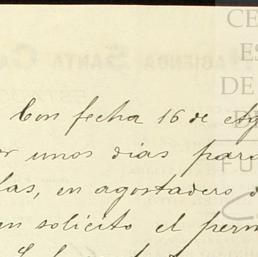 CE
ES
HACIENDA SANTA CA
DE
Con fecha 16 de Ag
or unos dias para
las, en agostadero d
en solicito el perm
FU